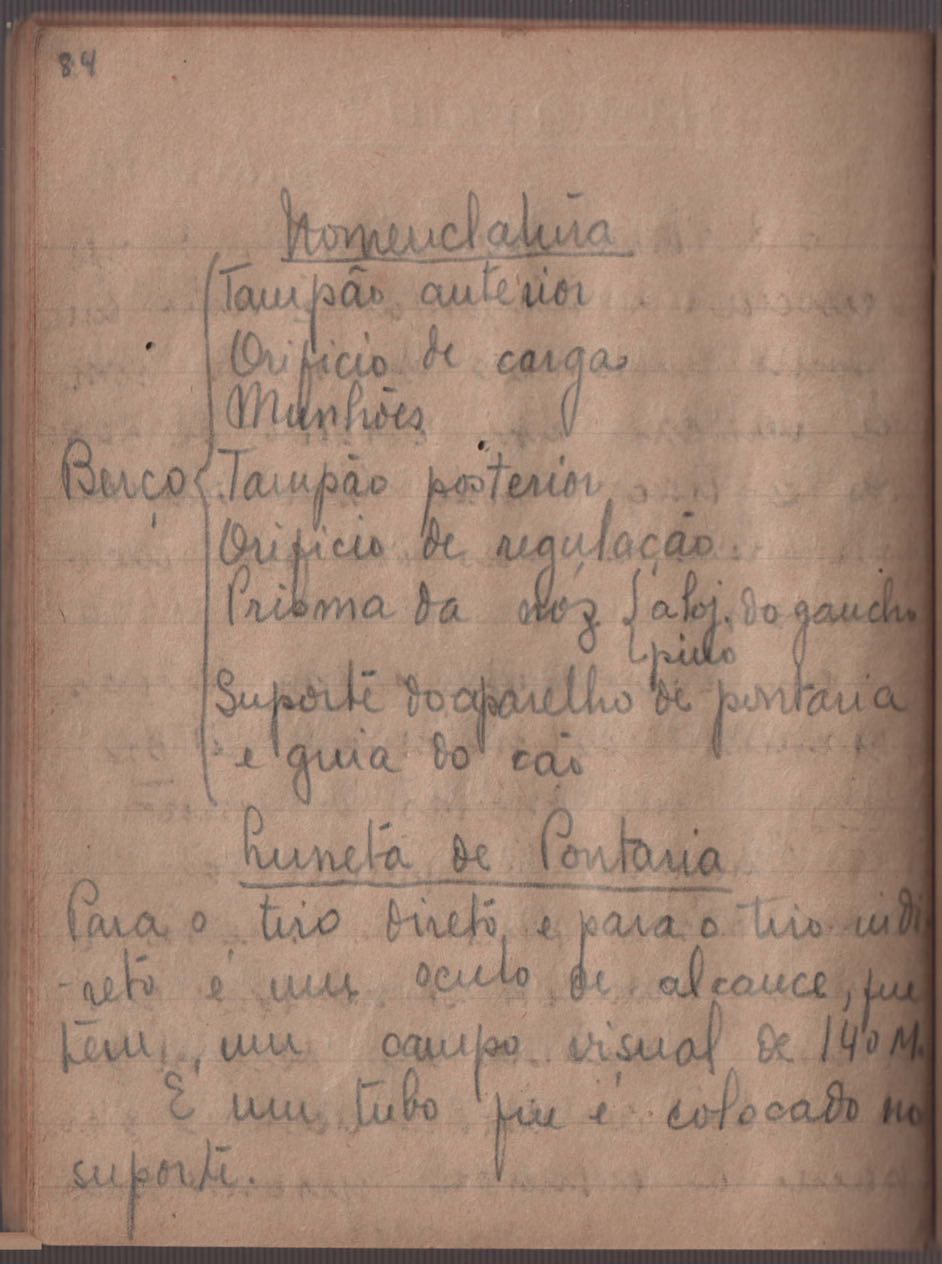 84
Nomenclatura
Tampão anterior
Orificio de carga
Munhões
Berço { Tampão posterior
Orificio de regulação
Prisma da nóz { aloj. do gaucho
pino
Suporte do aparelho de pontaria
e guia do cão
Luneta de Pontaria
Para o tiro direto, e para o tiro indi-
-reto é um oculo de alcance, que
têm, um campo visual de 140 M.
É um tubo que é colocado no
suporte.